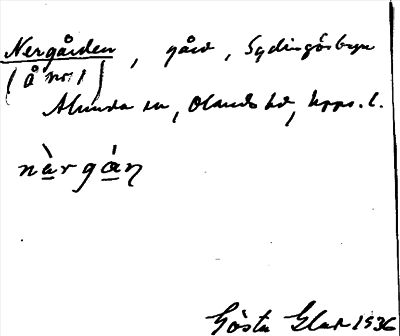 Nergården, gård, Sydingösbyn
(Å nr 1)
Alunda sn, Olands hd, Upps. l.
nàrgáṇ
Gösta 1936